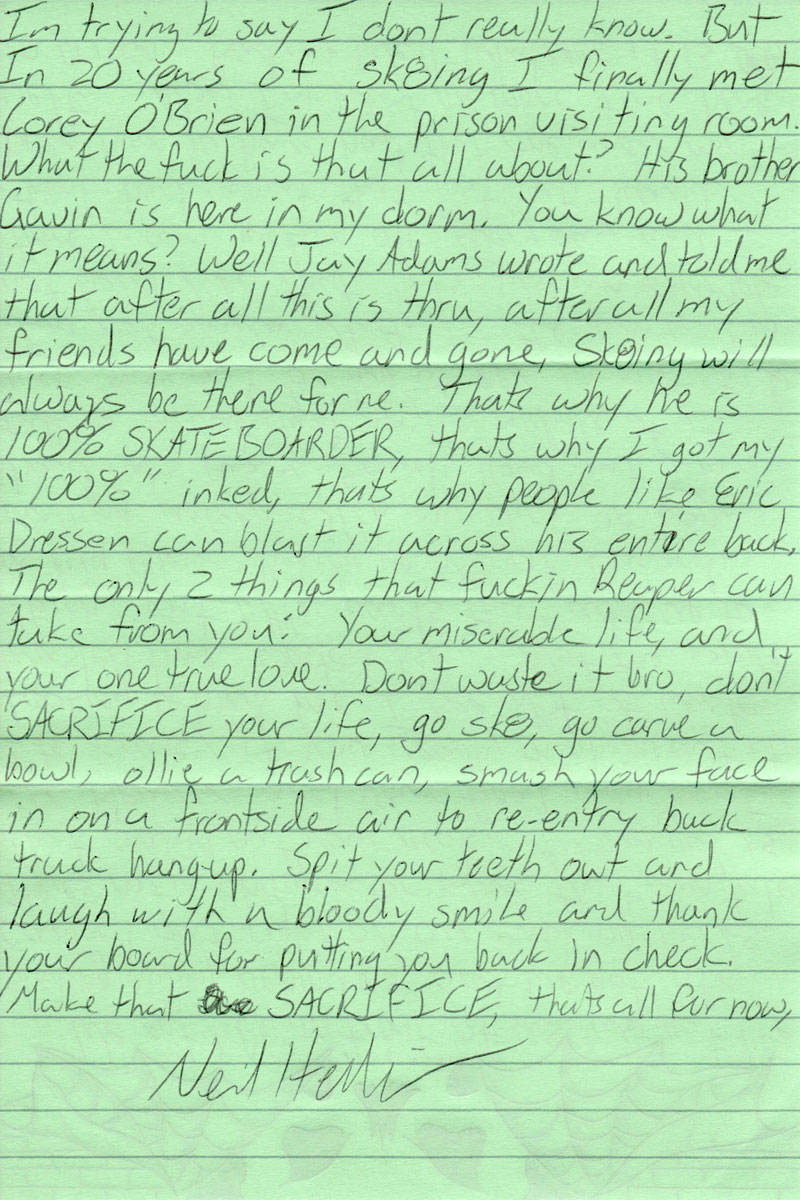 Im trying to say I dont really know. But
In 20 years of sk8ing I finally met
Corey O'Brien in the prison visiting room.
What the fuck is that all about? His brother
Gavin is here in my dorm. You know what
it means? Well Jay Adams wrote and told me
that after all this is thru, after all my
friends have come and gone, Sk8ing will
always be there for me. Thats why he is
100% SKATEBOARDER, thats why I got my
"100%" inked, thats why people like Eric
Dressen can blast it across his entire back.
The only 2 things that fuckin Reaper can
take from you: Your miserable life, and
your one true love. Dont waste it bro, don't
SACRIFICE your life, go sk8, go carve a
bowl, ollie a trash can, smash your face
in on a frontside air to re-entry back
truck hang-up. Spit your teeth out and
laugh with a bloody smile and thank
your board for putting you back in check.
Make that SACRIFICE, thats all for now,
Neil